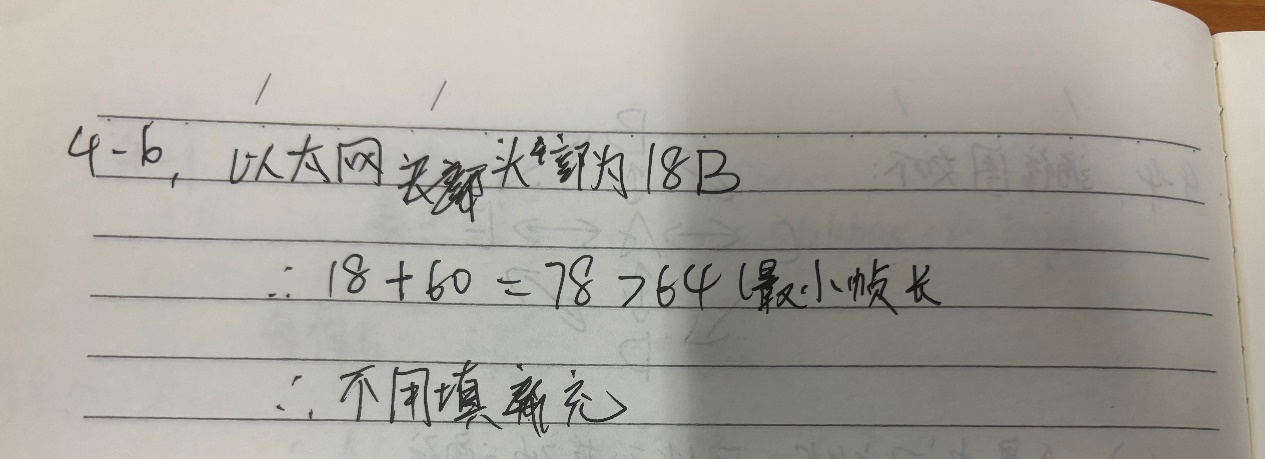 4-6, 以太网头部为18B
∴ 18+60=78>64(最小帧长
∴ 不用填充